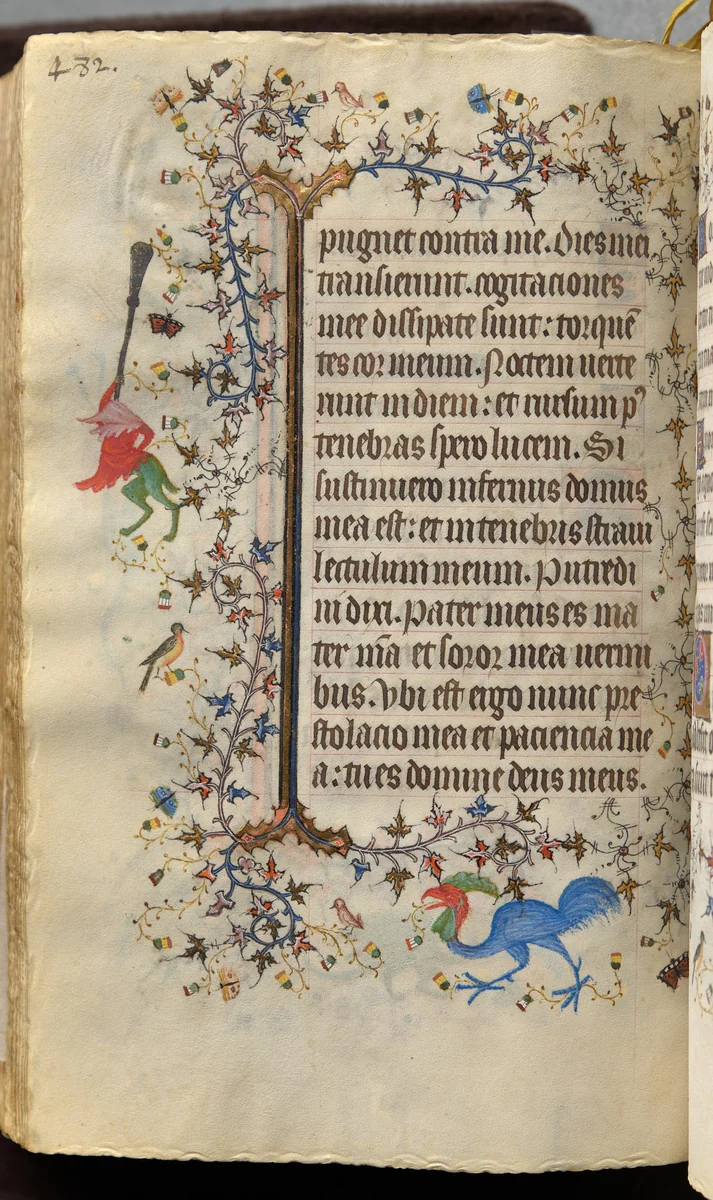 432.
pugnet contra me. Dies mei
transierunt. cogitaciones
mee dissipate sunt: torquē
tes cor meum. Noctem uerte
runt in diem: et rursum pꝰ
tenebras spero lucem. Si
sustinuero infernus domus
mea est: et in tenebris straui
lectulum meum. Putredi
ni dixi. Pater meus es ma
ter m̄a et soror mea uermi
bus. Vbi est ergo nunc pre
stolacio mea et paciencia me
a: tu es domine deus meus.